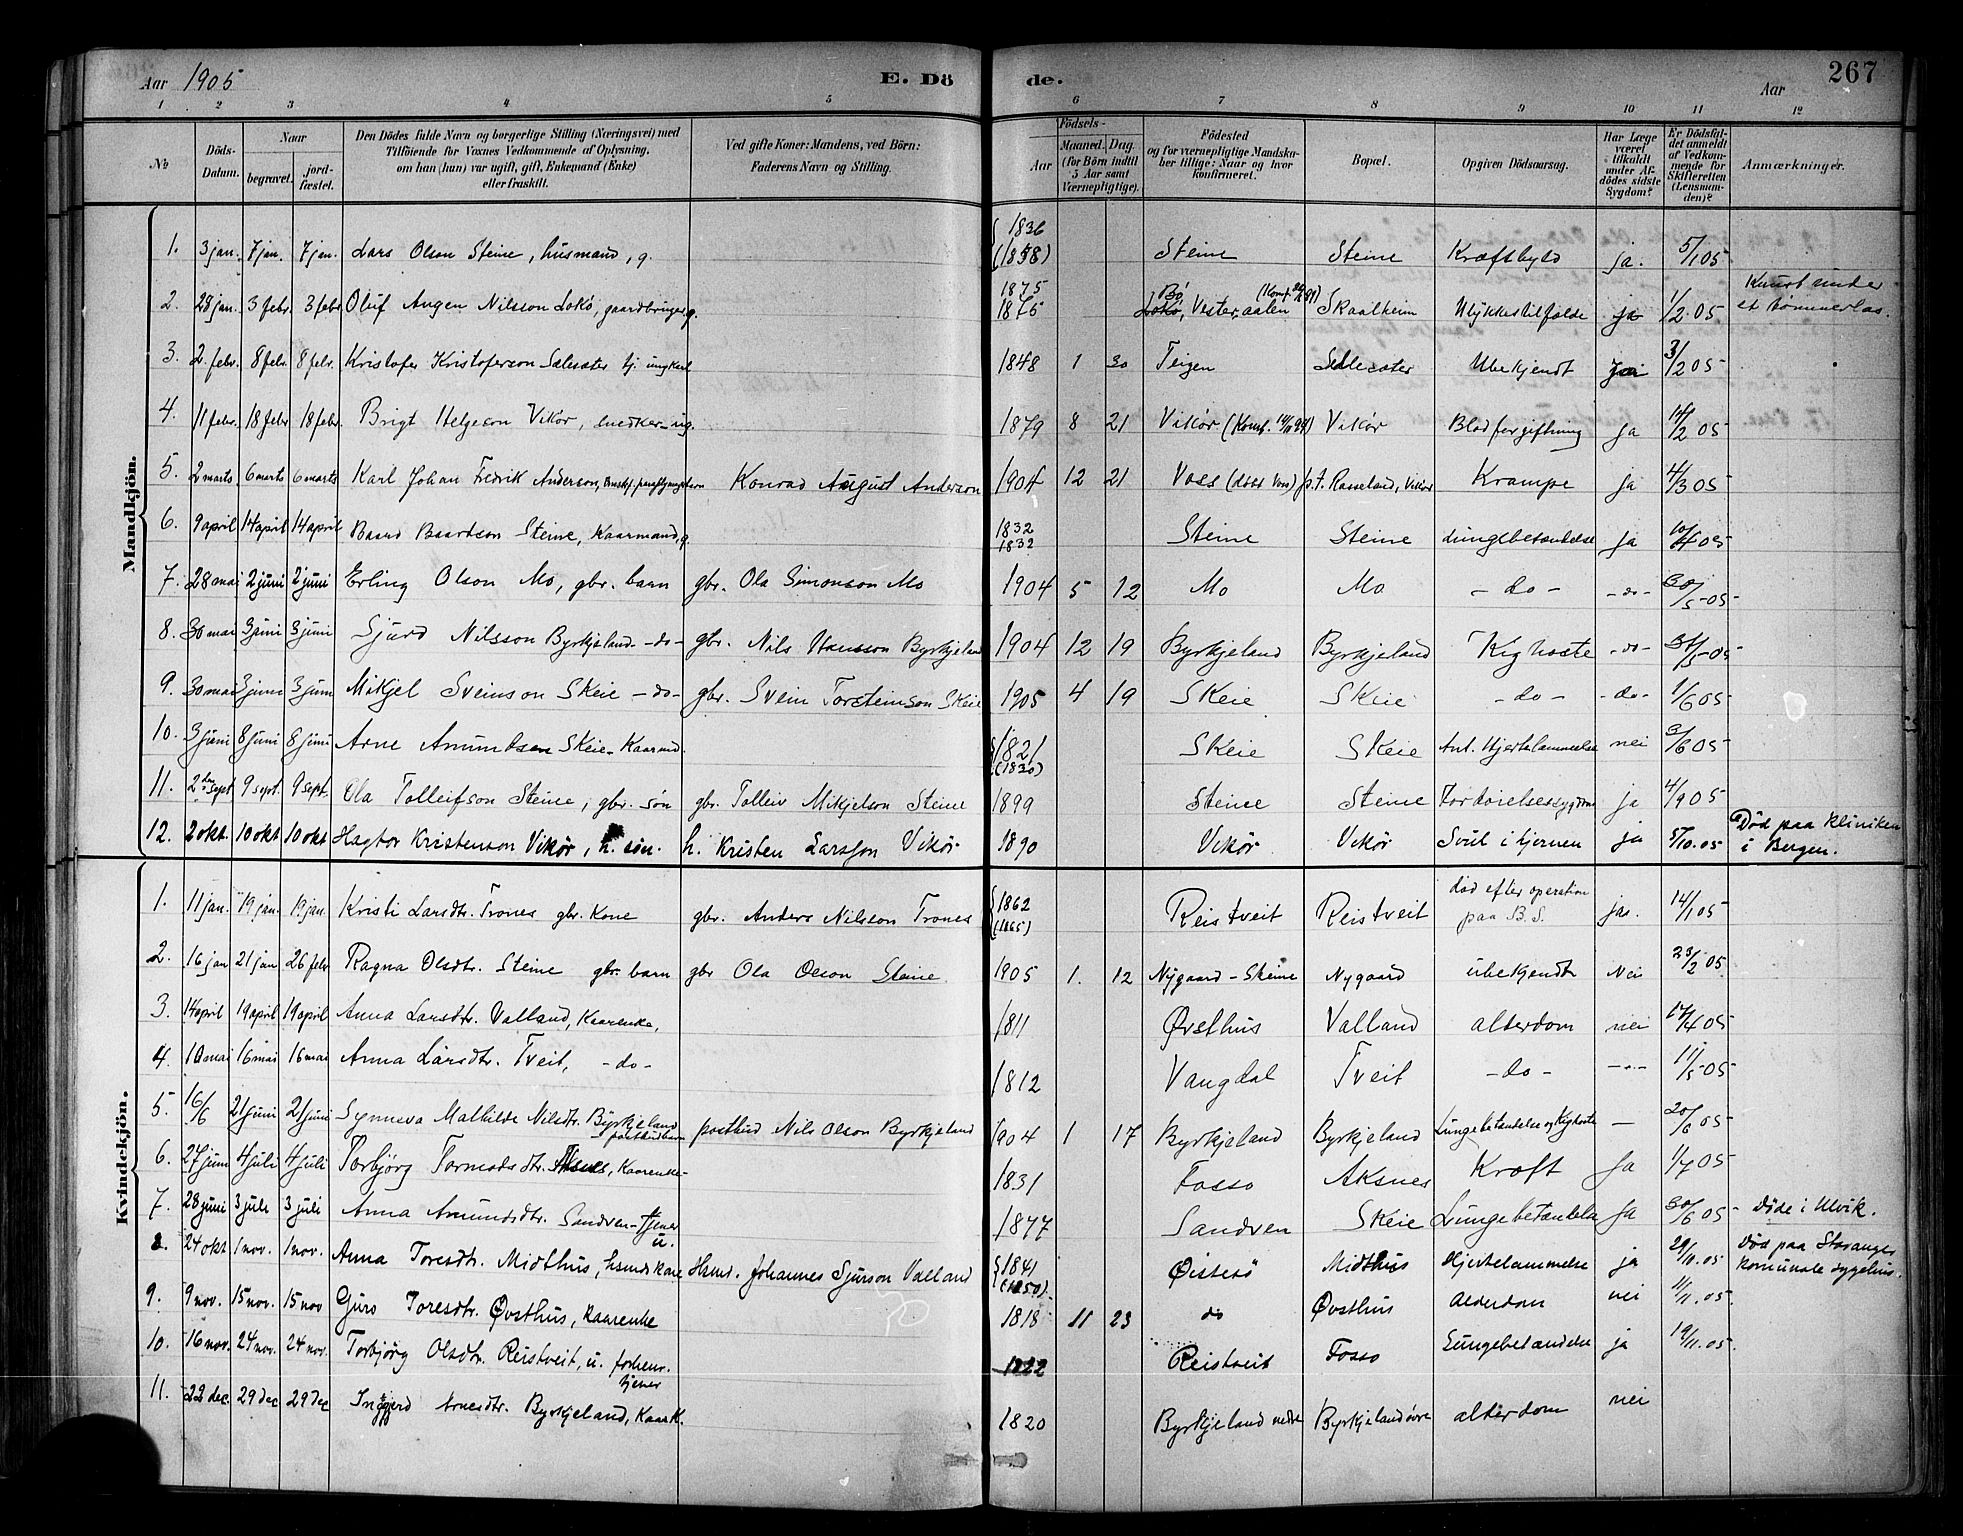 Aar 1905 E. Dö de. Aar 267
1 2 3 4 5 6 7 8 9 10 11 12
№ Döds-Datum. Naar begravet. jord-fæstet. Den Dödes fulde Navn og borgerlige Stilling (Næringsvei) med Tilföiende for Voxnes Vedkommende af Oplysning, om han (hun) var ugift, gift, Enkemand (Enke) eller fraskilt. Ved gifte Koner: Mandens, ved Börn: Faderens Navn og Stilling. Födsels- Aar Maaned. Dag. (for Börn indtil 5 Aar samt Værnepligtige). Födested og for værnepligtige Mandska-ber tillige: Naar og hvor konfirmeret. Bopæl. Opgiven Dödsaarsag. Har Læge været tilkaldt under Af-dödes sidste Sygdom? Er Dödsfal-det anmeldt af Vedkom-mende for Skifteretten (Lensman-den)? Anmærkninger.
Mandkjön.
1. 3 jan. 7 jan. 7 jan. Lars Olson Steine, husmand, g. 1836 (1838) Steine Steine Kræftbyld ja. 5/1 05
2. 28 jan. 3 febr. 3 febr. Oluf Angen Nilsson Lokö, gaardbruger g. 1875 1876 Bö, Vesteraalen Skaalheim Ulykkestilfælde ja 1/2 05 Knust under et tømmerlas.
3. 2. febr. 8 febr. 8 febr. Kristofer Kristoferson Sælesæter tj. ungkarl 1848 1 30 Teigen Sælesæter Ubekjendt 3/2 05
4. 11 febr. 18 febr. 18 febr. Brigt Helgeson Vikör, snedker ug. 1879 8 21 Vikör (Konf. Vikör Blodforgiftning ja 14/2 05
5. 2 marts 6 marts 6 marts Karl Johan Fredrik Anderson, Konrad August Anderson 1904 12 21 Voss (døbt Voss) p.t. Rosseland, Vikör Krampe ja 4/3 05
6. 9 april 14 april 14 april Baard Baardson Steine, Kaarmand, g. 1832 1832 Steine Steine Lungebetændelse ja 10/4 05
7. 28 mai 2 juni 2 juni Erling Olson Mo, gbr. barn gbr. Ola Simonson Mo 1904 5 12 Mo Mo - do - - do - 30/5 -05
8. 30 mai 3 juni 3 juni Sjurd Nilsson Byrkjeland - do - gbr. Nils Hansson Byrkjeland 1904 12 19 Byrkjeland Byrkjeland Kighoste - do - 31/5 -05
9. 30 mai 3 juni 3 juni Mikjel Sveinson Skeie - do - gbr. Svein Torsteinson Skeie 1905 4 19 Skeie Skeie - do - - do - 1/6 05
10. 3 juni 8 juni 8 juni Arne Amundsen Skeie - Kaarmd. 1821 (1830) Skeie Skeie Ant. Hjertelammelse nei 3/6 05
11. 2den sept 9 sept. 9 sept. Ola Tolleifson Steine, gbr. søn gbr. Tolleiv Mikjelson Steine 1899 Steine Steine ja 4/9 05
12. 2 okt. 10 okt 10 okt Hagtor Kristenson Vikör, h. søn. h. Kristen Larsson Vikör 1890 Vikör Vikör Svul i hjernen ja 5/10. 05 Død paa kliniken i Bergen.
Kvindekjön.
1. 11 jan. 19 jan. 19 jan. Kristi Larsdtr. Trones gbr. Kone gbr. Anders Nilsson Trones 1862 (1865) Reistveit Reistveit død efter operation paa B. S. ja. 14/1 05
2. 16 jan 21 jan 26 febr Ragna Olsdtr. Steine gbr. barn gbr Ola Olson Steine 1905 1. 12 Nygaard - Steine Nygaard ubekjendt Nei 23/2 05
3. 14 april 19 april 19 april Anna Larsdtr. Valland, Kaarenke, 1811 Øvsthus Valland alderdom nei 17/4 05
4. 10 mai 16 mai 16 mai Anna Larsdtr. Tveit, - do - 1812 Vangdal Tveit - do - 11/5 -05
5. 16/6 21 juni 21 juni Synneva Mathilde Nilsdtr. Byrkjeland postbudbarn postbud Nils Olson Byrkjeland 1904 1 17 Byrkjeland Byrkjeland Lungebetændelse og Kighoste - 20/6 05
6. 27 juni 4 juli 4 juli Torbjörg Tormodsdtr. Aksnes, Kaarenke - 1831 Fosso Aksnes Kræft Ja 1/7 05
7. 28 juni 3 juli 3 juli Anna Amundsdtr. Sandven - tjener u. 1877 Sandven Skeie Lungebetændelse Ja 30/6 05 - Døde i Ulvik.
8. 24 okt 1 nov. 1 nov. Anna Toresdtr. Midthus, husmdskone Husmd. Johannes Sjurson Valland 1841 (1850) Øistesö Midthus Hjertelammelse ja 29/11. 05 Død paa Stavanger komunale sygehus.
9. 9 nov. 15 nov. 15 nov Guro Toresdtr. Øvsthus, kaarenke 1818 11 23 do Øvsthus Alderdom nei 11/11. 05.
10. 16 nov. 24 nov. 24 nov. Torbjörg Olsdtr. Reistveit, u. forhenv. tjener 1822 Reistveit Fosso Lungebetændelse ja 19/11. 05.
11. 22 dec. 29 dec 29 dec Ingjerd Arnesdtr. Byrkjeland, KaarK. 1820 Byrkjeland nedre Byrkjeland övre alderdom nei